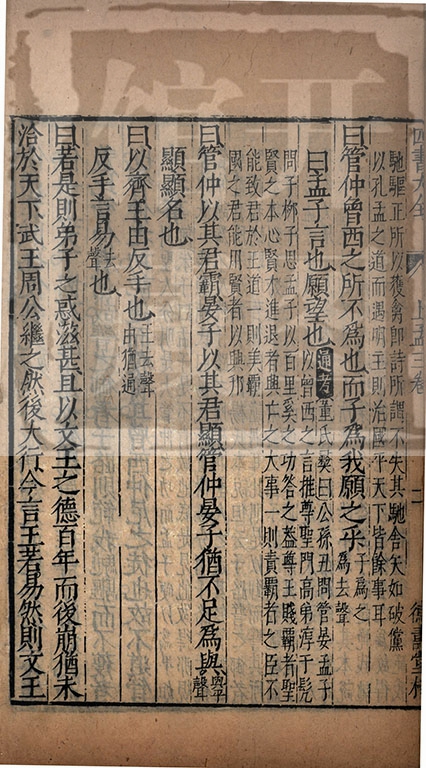 四書大全 上孟三卷 二 德壽堂梓
馳驅正所以獲禽即詩所謂不失其馳舍矢如破黨
以孔孟之道而遇明主則治國平天下皆餘事耳
曰管仲曾西之所不為也而子為我願之乎子為之為去聲
曰孟子言也願望也通考董氏彝曰公孫丑問管晏孟子
以曾西之言推尊聖門高弟淳于髡
問子柳子思孟子以百里奚之功答之蓋尊王賤霸者聖
賢之本心賢才進退者興亡之大事一則責霸者之臣不
能致君於王道一則美霸
國之君能用賢者以興邦
曰管仲以其君霸晏子以其君顯管仲晏子猶不足為與與平聲
顯顯名也
曰以齊王由反手也王去聲由猶通
反手言易去聲也
曰若是則弟子之惑滋甚且以文王之德百年而後崩猶未
洽於天下武王周公繼之然後大行今言王若易然則文王